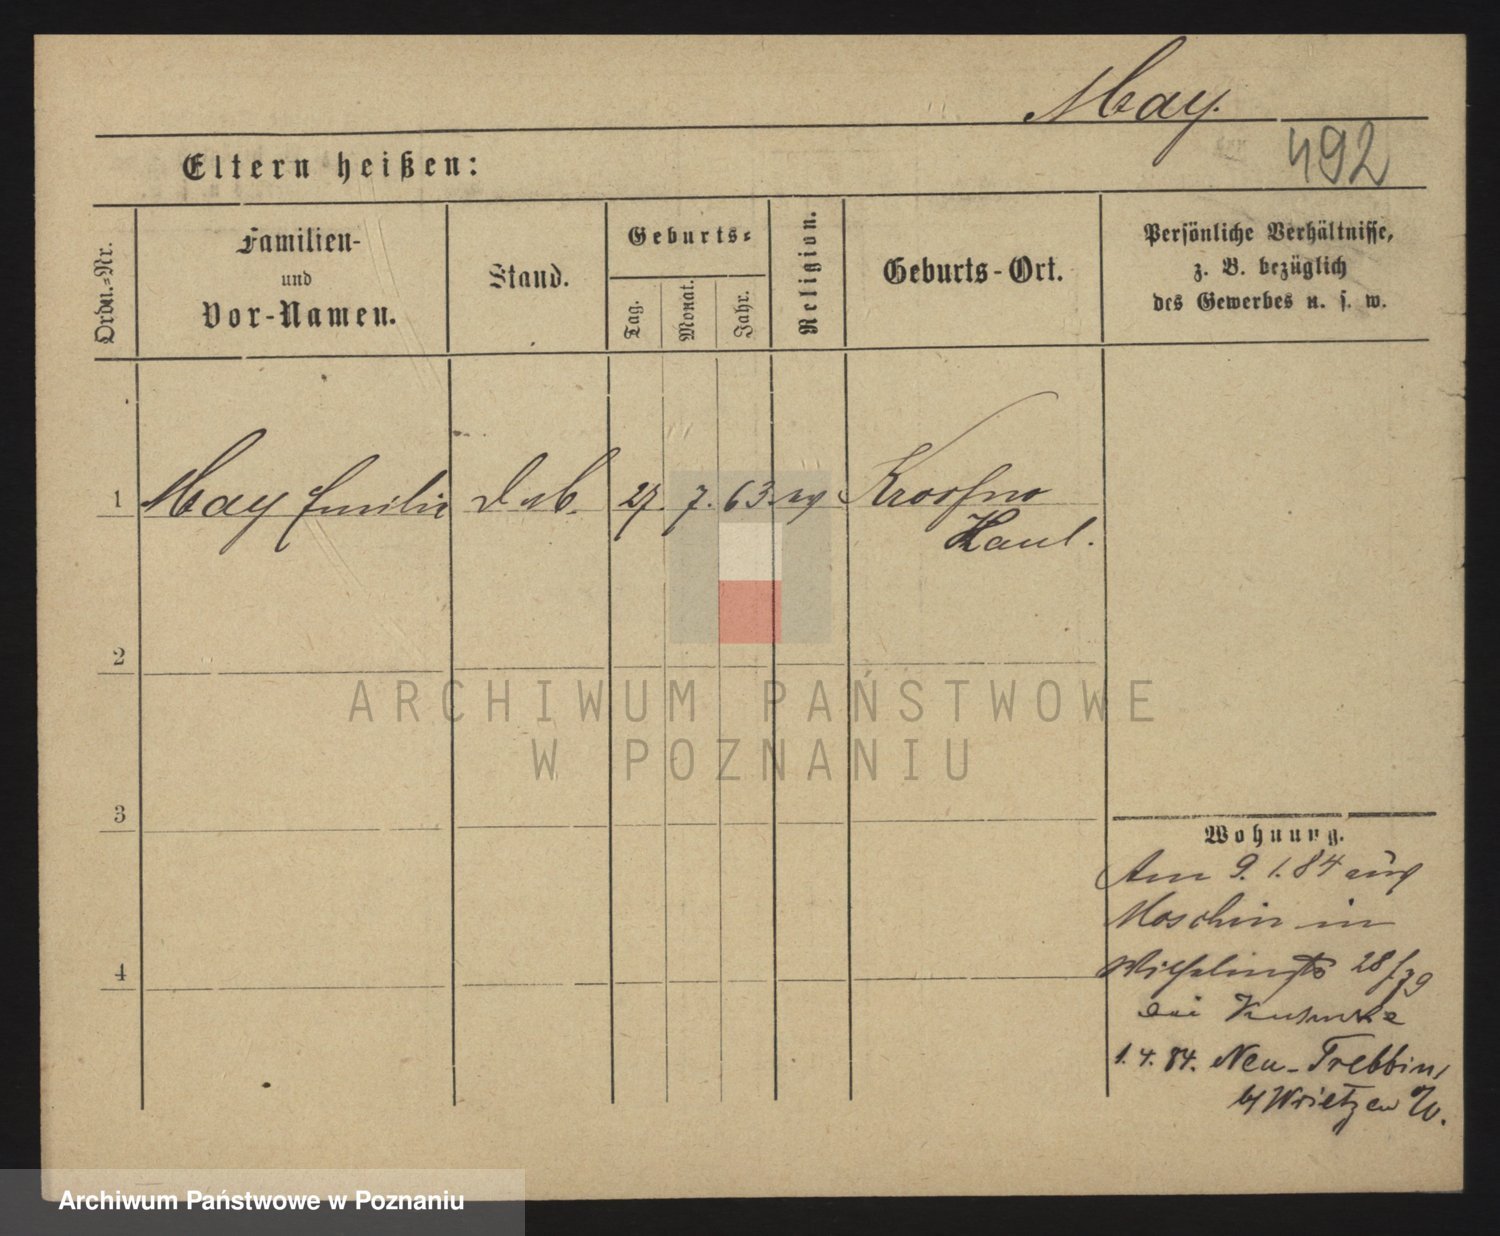 May.
492
Eltern heißen:
Ordn.=Nr.
Familien-
und
Vor-Namen.
Stand.
Geburts=
Tag.
Monat.
Jahr.
Religion.
Geburts-Ort.
Persönliche Verhältnisse,
z. B. bezüglich
des Gewerbes u. s. w.
1 May Emilie 27. 7. 63. ev
Haul.
2
3
4
Wohnung.
Am 9. 1. 84 aus
Moschin in
28/29
bei
1. 4. 84. Neu-Trebbin,
b/ Wrietzen
ARCHIWUM PAŃSTWOWE
W POZNANIU
Archiwum Państwowe w Poznaniu